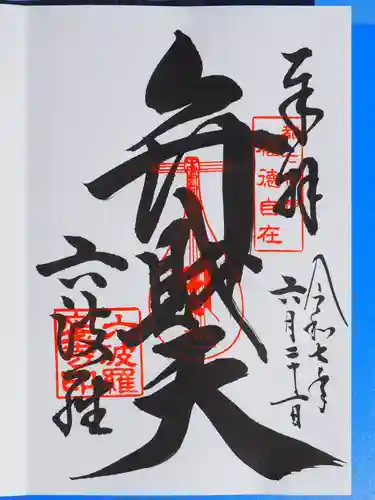 奉拝
福徳自在
令和七年
六月二十一日
弁財天
六波羅
六波羅